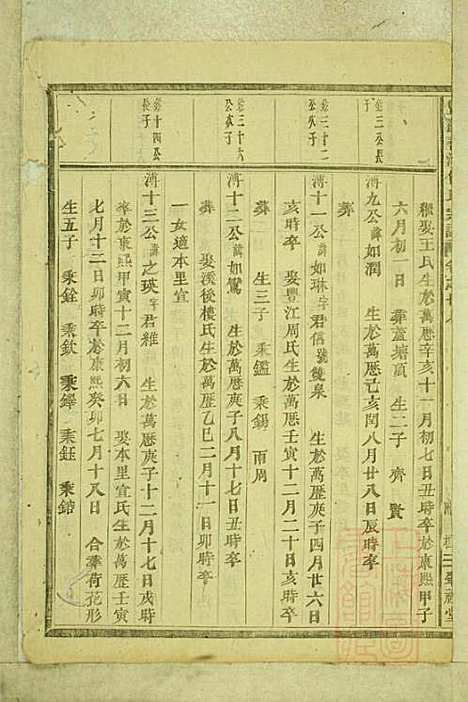 繼娶王氏生於萬曆辛亥十一月初七日丑時卒於康熙甲子
六月初一日 葬蓋塘頂 生二子 齊 賢
第三公長子
溥九公諱如潤 生於萬曆己亥閏八月廿八日辰時卒
葬
第三十二公次子
溥十一公諱如琳字君信號後泉 生於萬曆庚子四月廿六日
亥時卒 娶豐江周氏生於萬曆壬寅十二月二十日亥時卒
葬 生三子 乘鑑 乘錫 雨周
第三十六公次子
溥十二公諱如鶯 生於萬曆庚子八月十七日丑時卒
娶溪後樓氏生於萬曆乙巳二月十一日卯時卒
葬 一女適本里宜
第十四公長子
溥十三公諱之瑛字君維 生於萬曆庚子十二月十七日戌時
卒於康熙甲寅十二月初六日 娶本里宜氏生於萬曆壬寅
七月十二日卯時卒於康熙癸卯七月十八日 合葬荷花形
生五子 乘銓 乘欽 乘鐸 乘鈺 乘錯